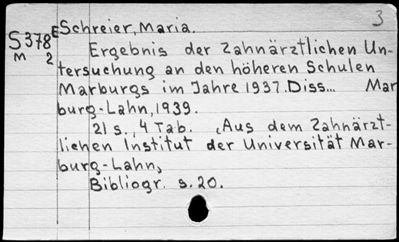 3
S378E Schreier, Maria.
M 2 Ergebnis der Zahnärztlichen Un-
tersuchung an den höheren Schulen
Marburgs im Jahre 1937. Diss... Mar
burg-Lahn, 1939.
21 s., 4 Tab. (Aus dem Zahnärzt-
lichen Institut der Universität Mar-
burg-Lahn,
Bibliogr. s. 20.